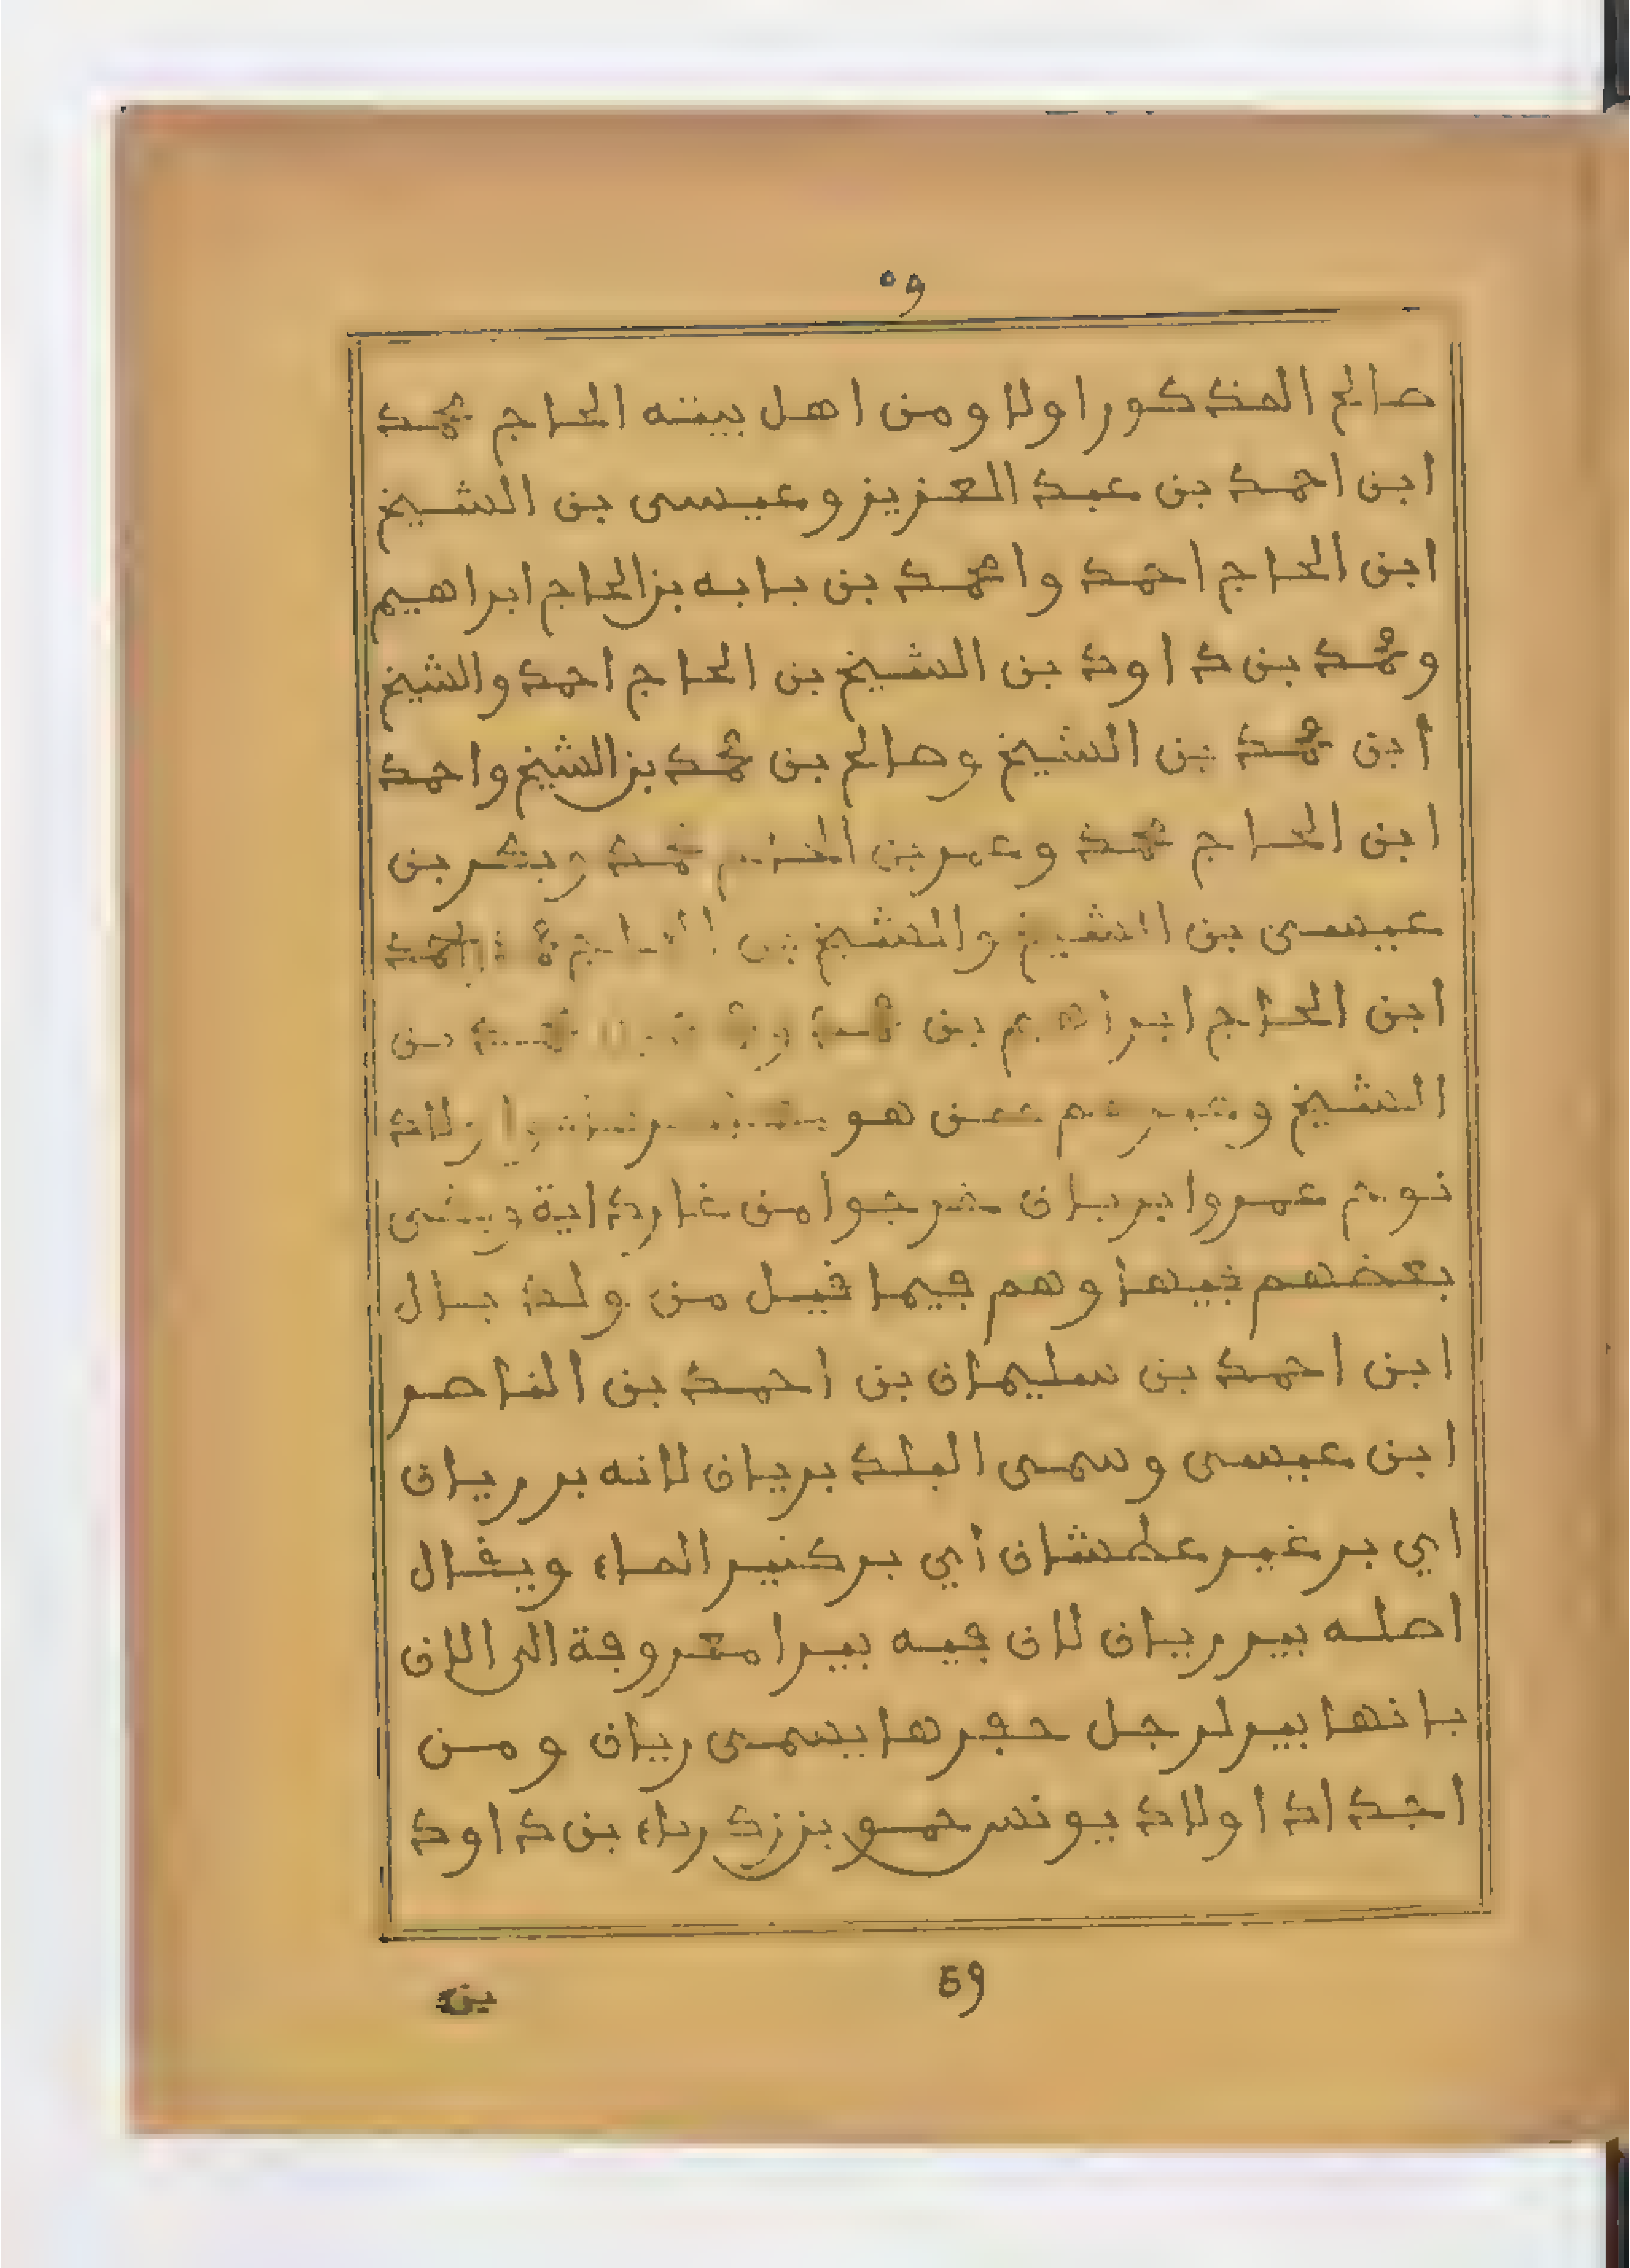 ٥٩
صالح المذكور اولا ومن اهل بيته الحاج محمد
ابن احمد بن عبد العزيز وعيسى بن الشيخ
ابن الحاج احمد وامحمد بن بابه بن الحاج ابراهيم
ومحمد بن داود بن الشيخ بن الحاج احمد والشيخ
ابن محمد بن الشيخ وصالح بن محمد بن الشيخ واحمد
ابن الحاج محمد وعمر بن وبكر بن
عيسى بن الشيخ والشيخ بن
ابن الحاج ابراهيم بن بن
الشيخ وغيرهم ممن هو
نوح عمروا بريان خرجوا من غارداية وبقى
بعضهم فيها وهم فيما قيل من ولد بال
ابن احمد بن سليمان بن احمد بن الناصر
ابن عيسى وسمى البلد بريان لانه بر ريان
اي بر غير عطشان أي بر كثير الماء ويقال
اصله بير ريان لان فيه بيرا معروفة الى الان
بانها بير لرجل حفرها يسمى ريان ومن
اجداد اولاد يونس حمو بن زكرياء بن داود
59
بن